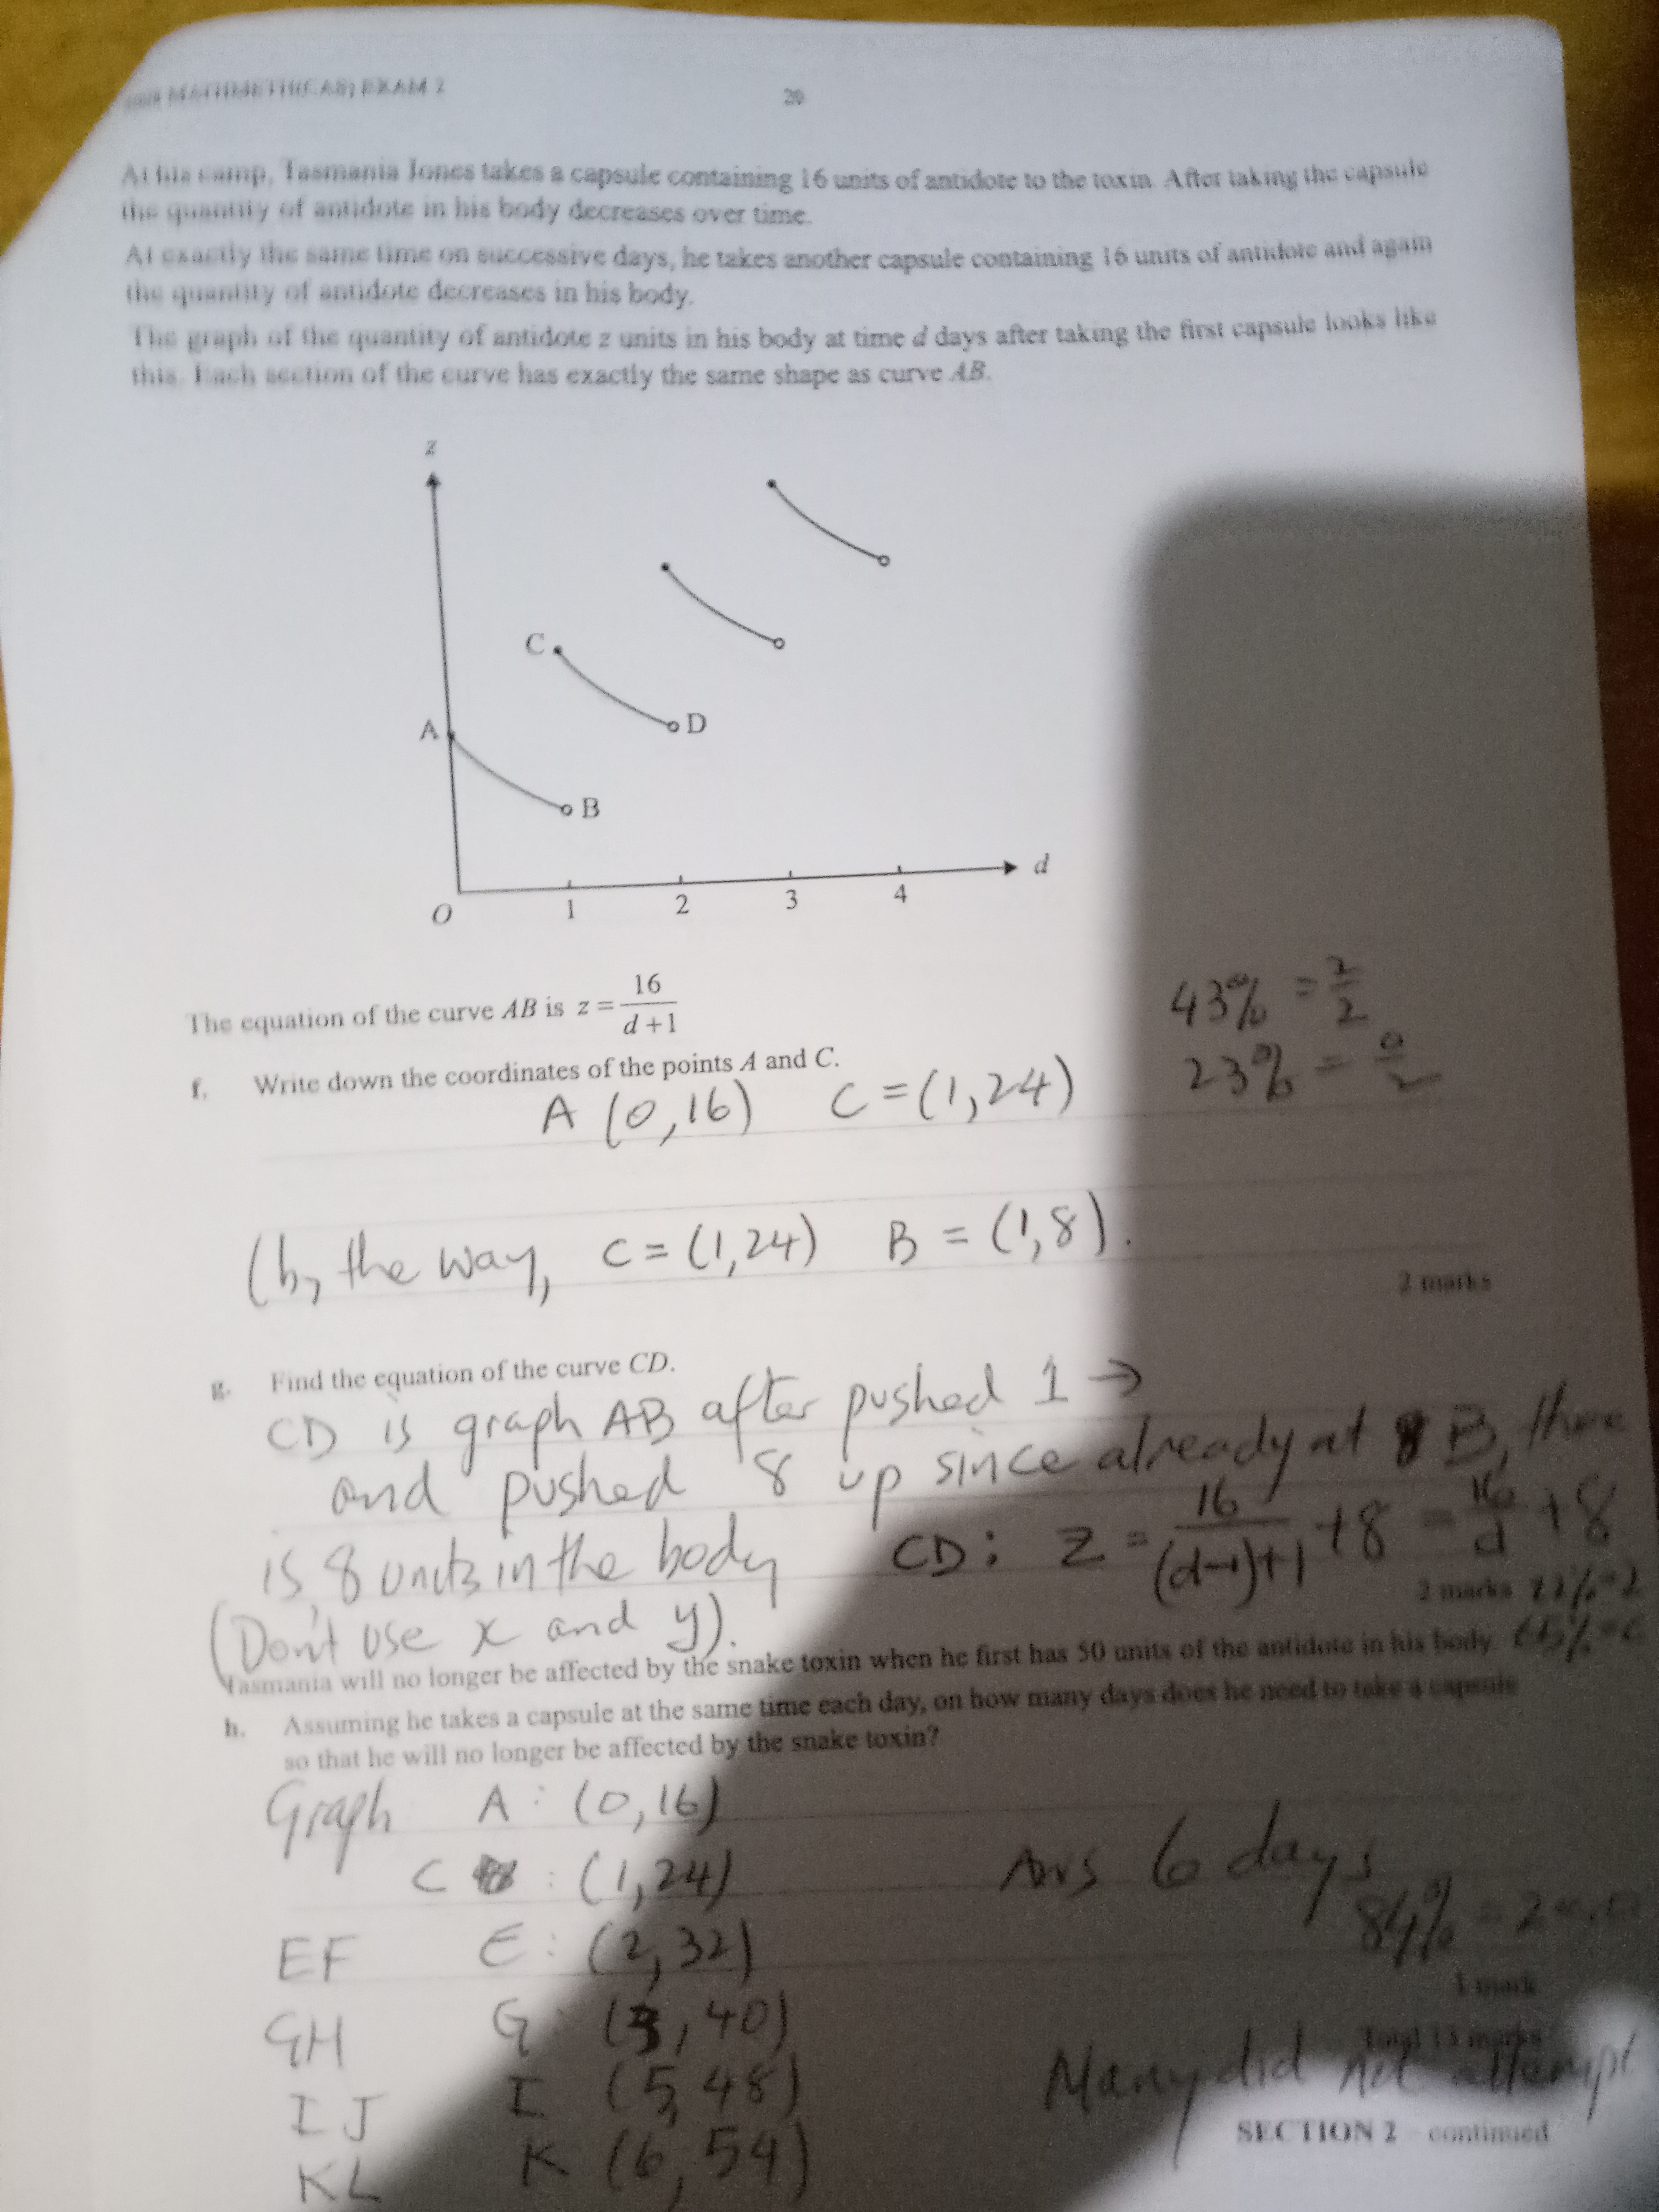 MATHMETH(CAS) EXAM 2
20
At his camp, Tasmania Jones takes a capsule containing 16 units of antidote to the toxin. After taking the capsule
the quantity of antidote in his body decreases over time.
At exactly the same time on successive days, he takes another capsule containing 16 units of antidote and again
the quantity of antidote decreases in his body.
The graph of the quantity of antidote z units in his body at time d days after taking the first capsule looks like
this. Each section of the curve has exactly the same shape as curve AB.
z
C
A
D
B
d
O 1 2 3 4
The equation of the curve AB is z = 16/(d+1)
43% = 2/2
f. Write down the coordinates of the points A and C.
23% = 0/2
A (0,16) C = (1,24)
(by the way, C = (1,24) B = (1,8).
2 marks
g. Find the equation of the curve CD.
CD is graph AB after pushed 1 →
and pushed 8 up since already at B, there
is 8 units in the body CD: z = 16/((d-1)+1) +8 = 16/d + 8
2 marks
(Don't use x and y).
Tasmania will no longer be affected by the snake toxin when he first has 50 units of the antidote in his body.
h. Assuming he takes a capsule at the same time each day, on how many days does he need to take a capsule
so that he will no longer be affected by the snake toxin?
Graph A : (0,16)
C : (1,24)
Ans 6 days
84% =
EF E : (2,32)
1 mark
GH G (3,40)
Total 13 marks
IJ I (5,48)
Many did not attempt
SECTION 2 – continued
KL K (6,54)